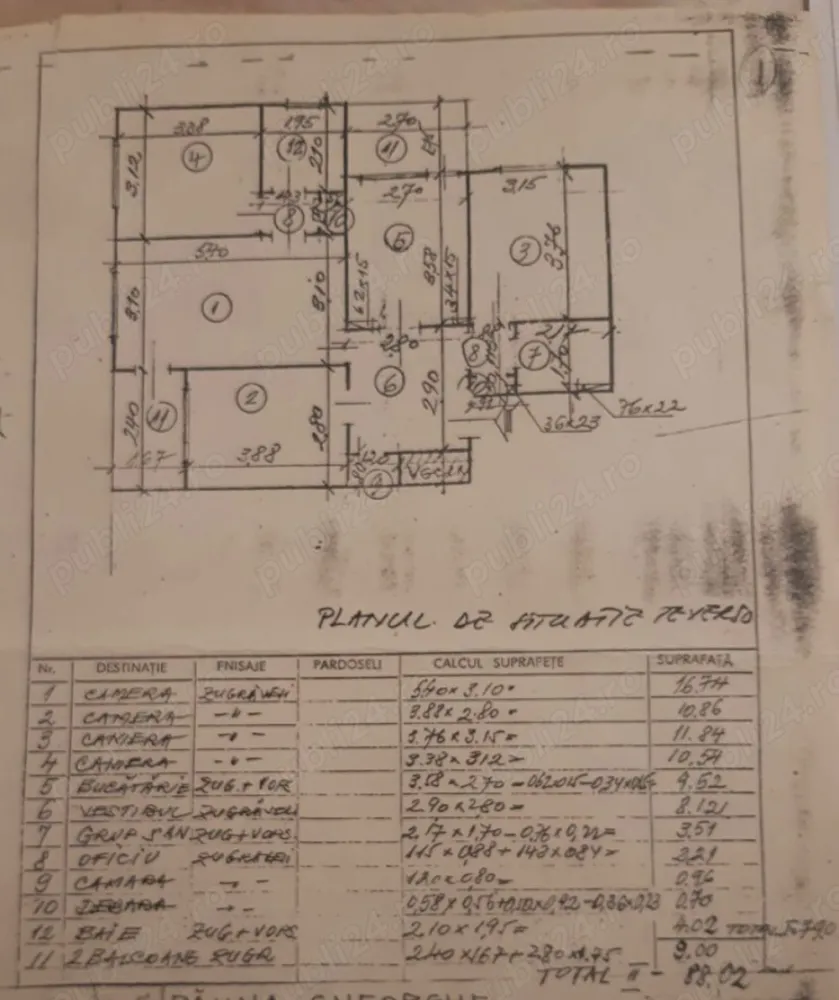 1
3.38
1.95
2.70
4
12
11
3.12
2.10
2.70
3.15
8
10
5
3
3.76
5.40
62x15
3.58
34x15
3.10
1
3.10
2.80
8
7
2.17
1.70
6
2
2.90
11
2.40
2.80
36x23
76x22
1.67
3.88
1.20
9
PLANUL DE SITUATIE
Nr. DESTINAȚIE FNISAJE PARDOSELI CALCUL SUPRAFEȚE SUPRAFAȚĂ
1 CAMERA ZUGRĂVELI 5.40 x 3.10 = 16.74
2 CAMERA -"- 3.88 x 2.80 = 10.86
3 CAMERA -"- 3.76 x 3.15 = 11.84
4 CAMERA -"- 3.38 x 3.12 = 10.54
5 BUCĂTĂRIE ZUG.+VOPS 3.58 x 2.70 - 0.62x0.15 - 0.34x0.15 9.52
6 VESTIBUL ZUGRĂVELI 2.90 x 2.80 = 8.121
7 GRUP SAN ZUG+VOPS. 2.17 x 1.70 - 0.76 x 0.22 = 3.51
8 OFICIU ZUGRĂVELI 1.15 x 0.88 + 1.43 x 0.84 = 2.21
9 CAMARA -"- 1.20 x 0.80 = 0.96
10 DEBARA -"- 0.58 x 0.56 + 0.92 - 0.36x0.23 0.70
12 BAIE ZUG+VOPS 2.10 x 1.95 = 4.02 TOTAL
11 2 BALCOANE ZUGR 2.40 x 1.67 + 2.80 x 1.75 9.00
TOTAL II - 88.02
GHEORGHE
publi24.ro